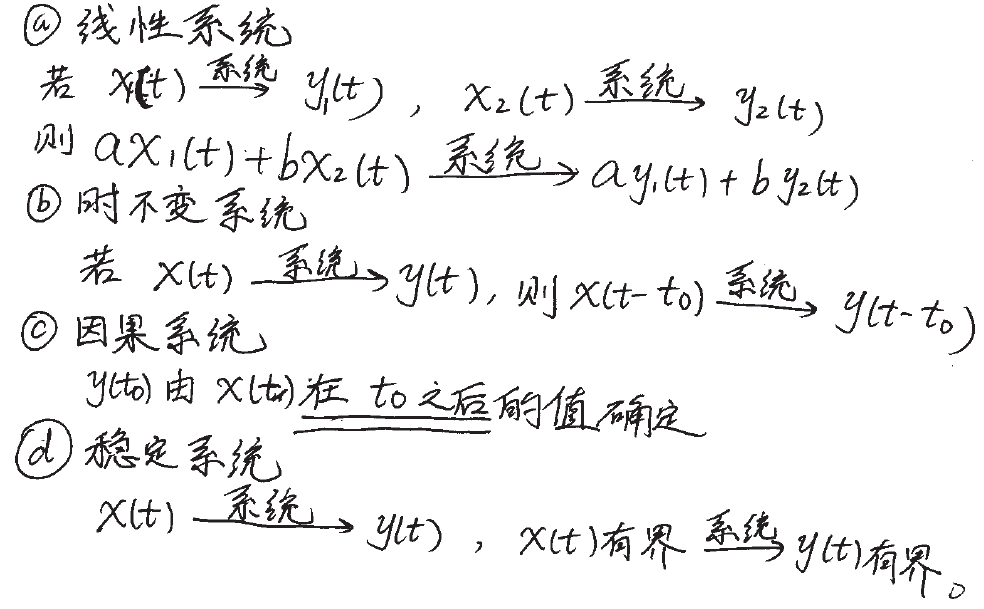 ⓐ 线性系统
若 x₁(t) 系统→ y₁(t) , x₂(t) 系统→ y₂(t)
则 ax₁(t)+bx₂(t) 系统→ ay₁(t)+by₂(t)
ⓑ 时不变系统
若 x(t) 系统→ y(t), 则 x(t-t₀) 系统→ y(t-t₀)
ⓒ 因果系统
y(t₀) 由 x(t) 在 t₀ 之后的值确定
ⓓ 稳定系统
x(t) 系统→ y(t) , x(t)有界 系统→ y(t)有界。